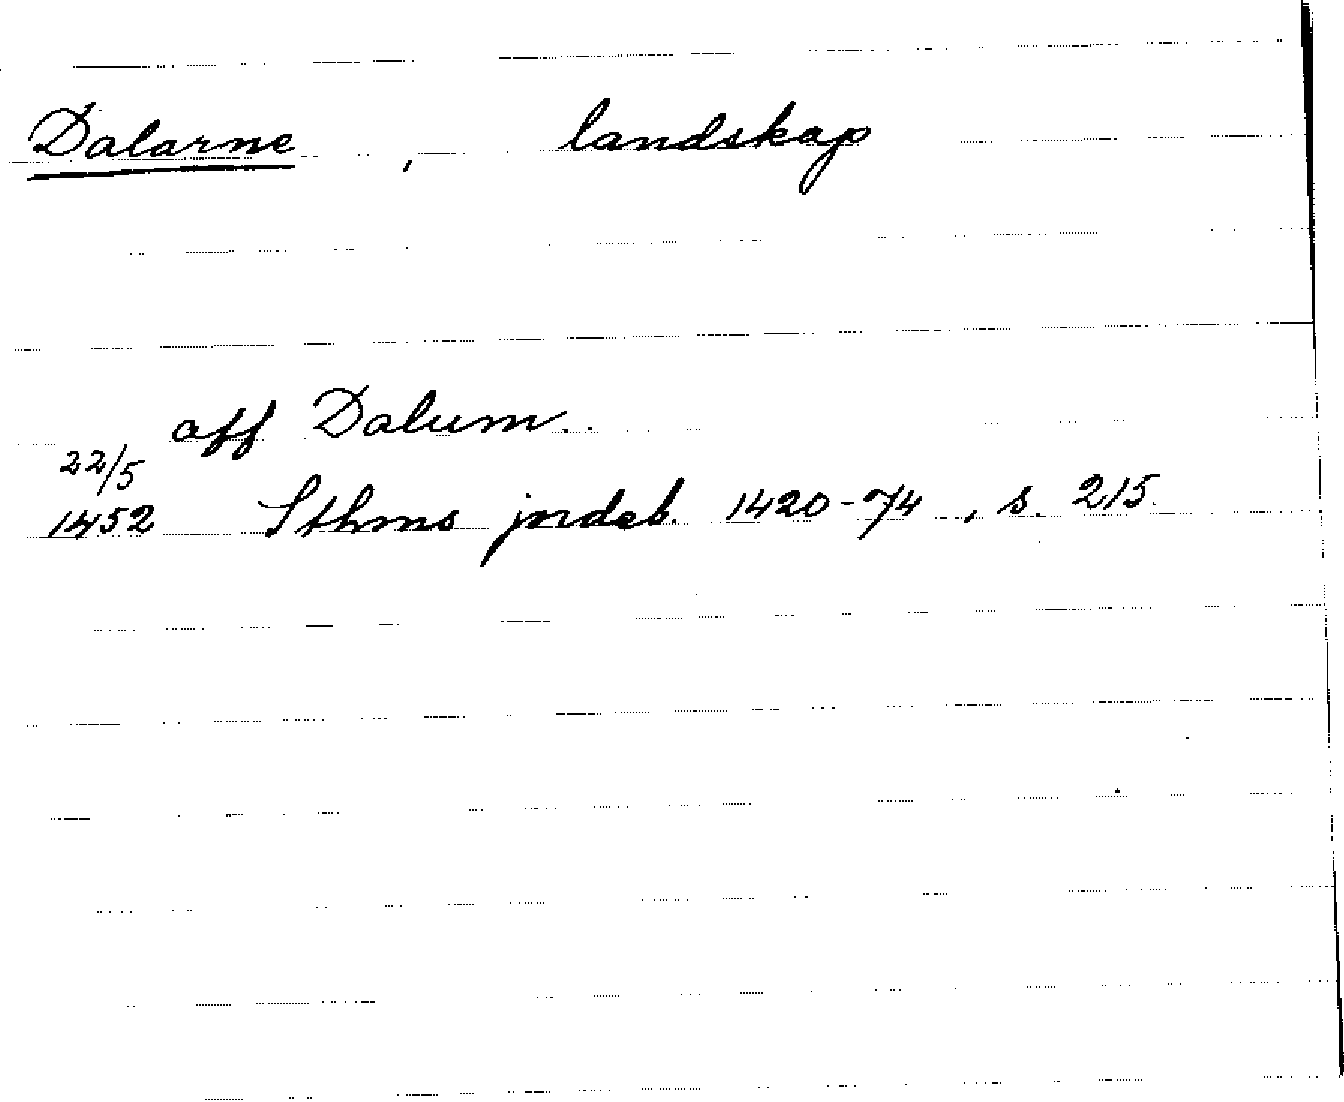 Dalarne , landskap
aff Dalum.
22/5
1452 Sthms jordeb. 1420-74, s. 215.